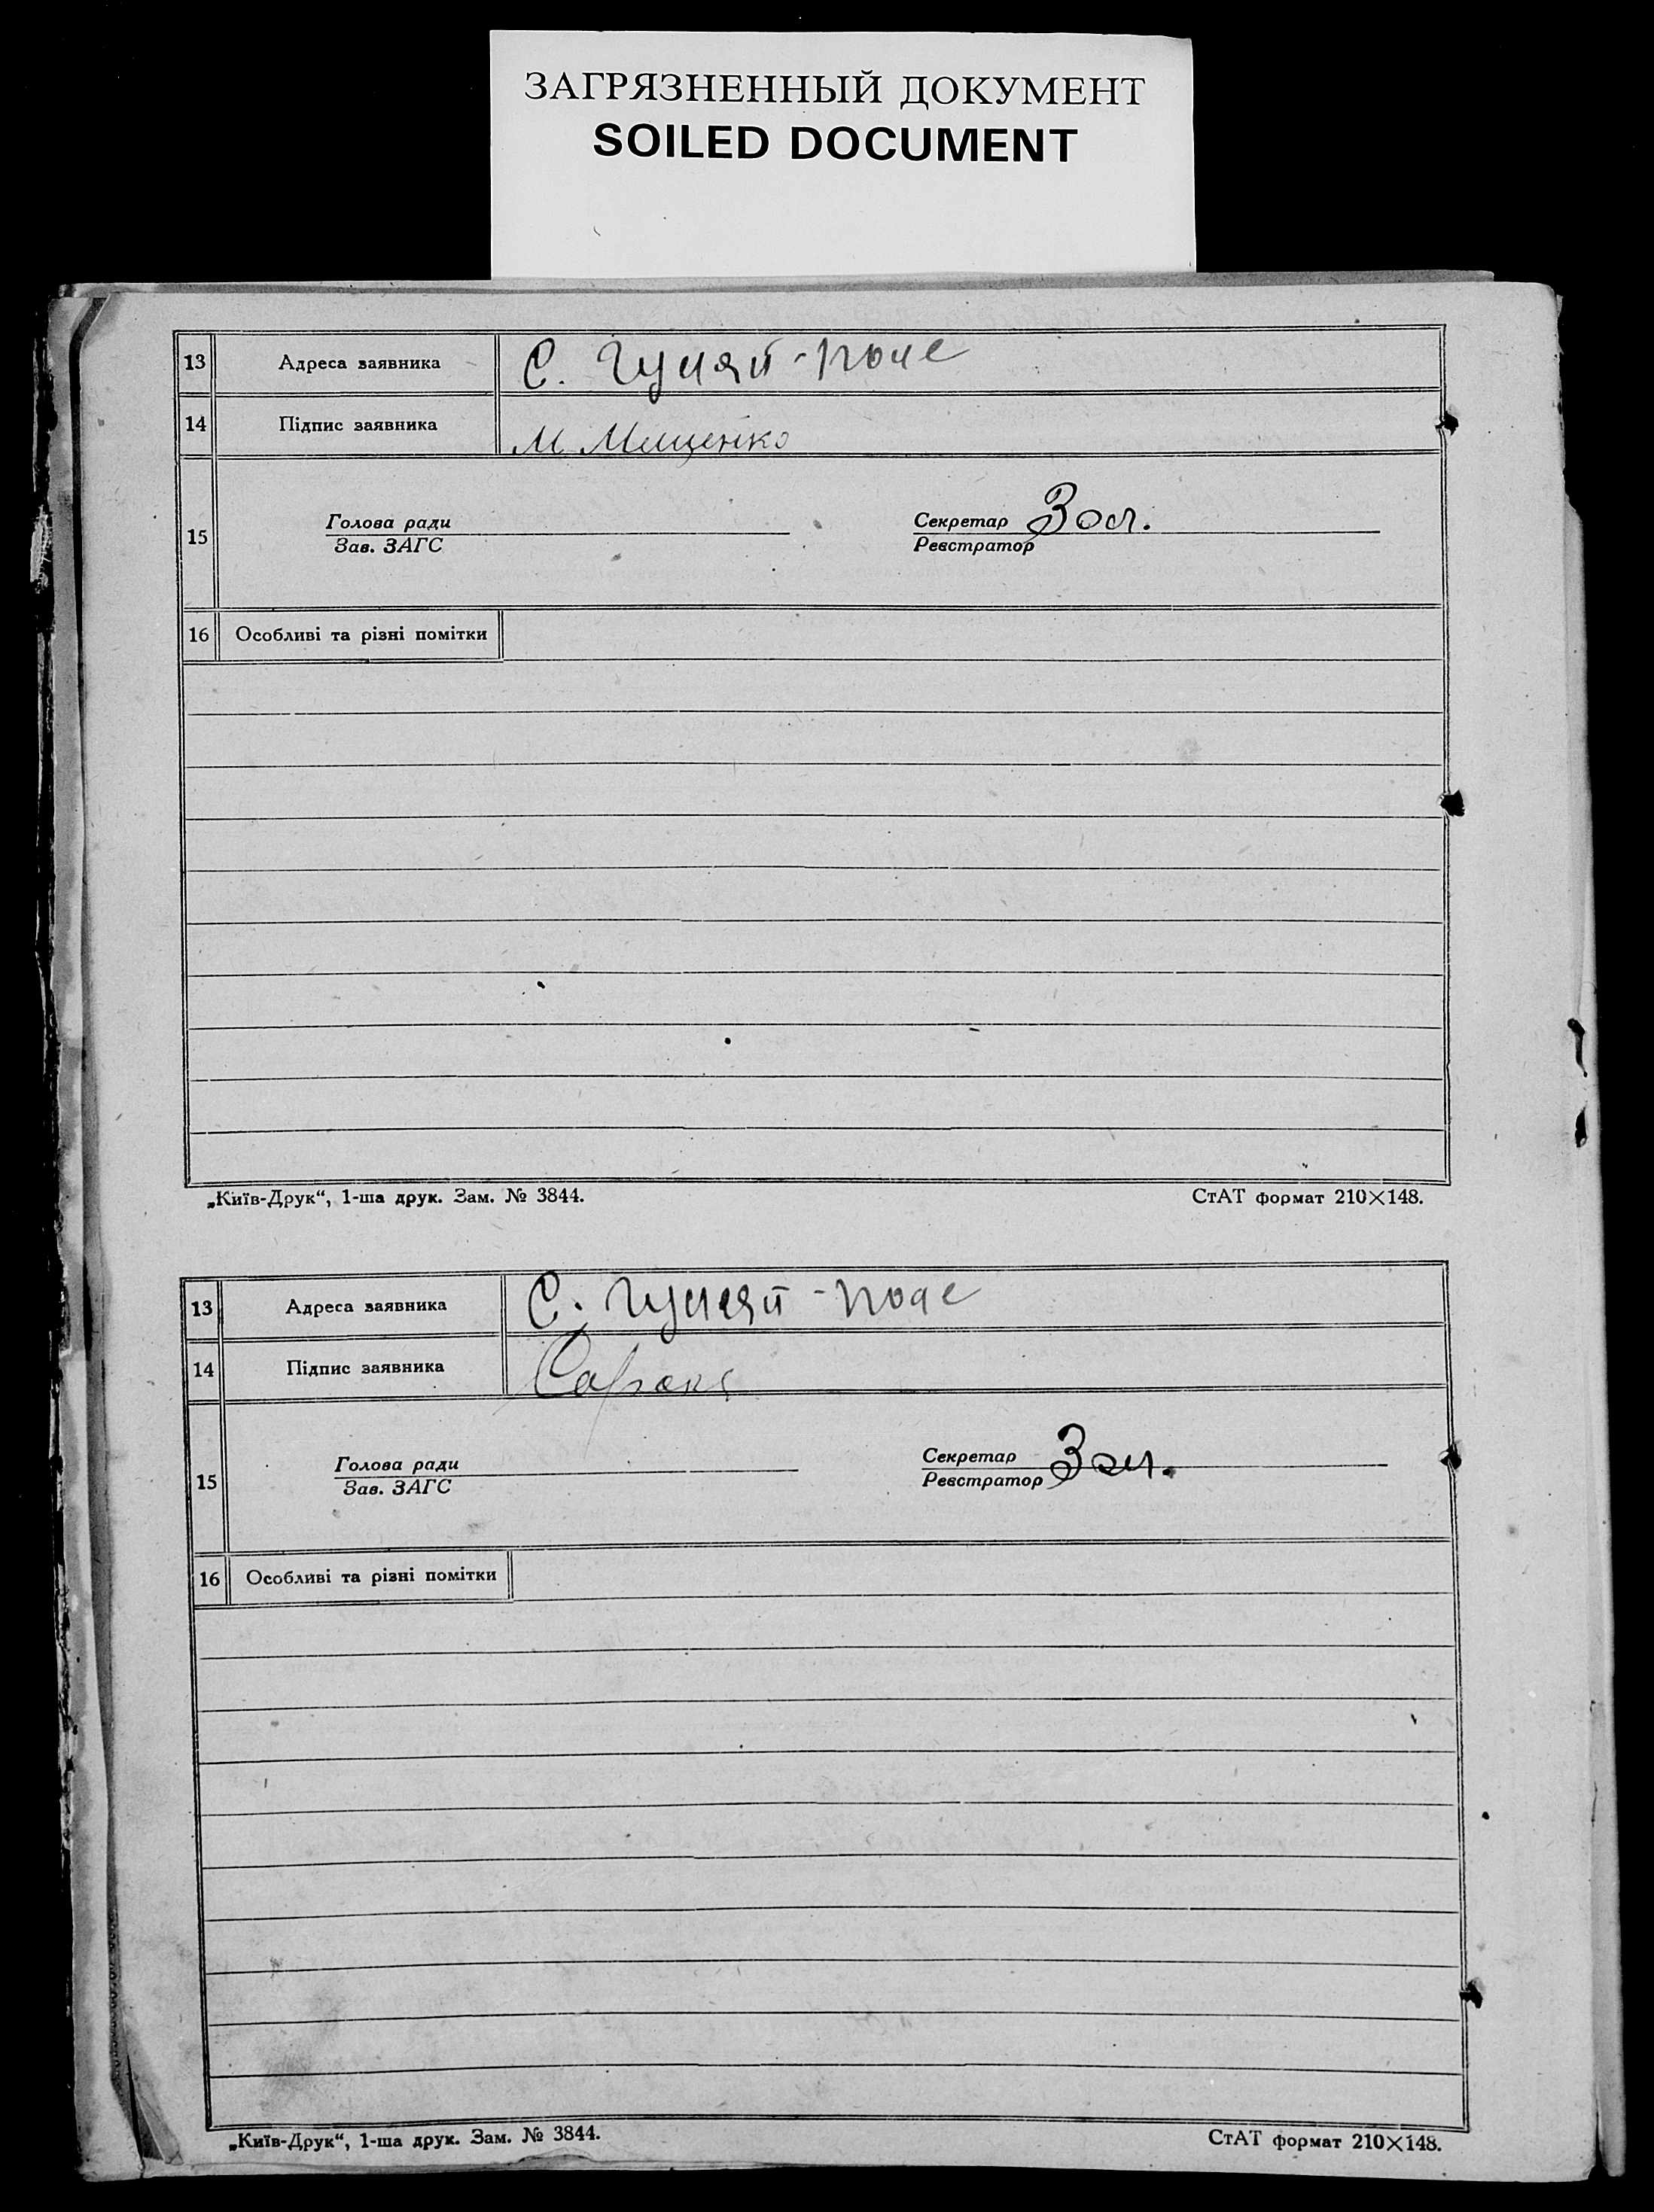 ЗАГРЯЗНЕННЫЙ ДОКУМЕНТ
SOILED DOCUMENT
13 Адреса заявника С. Гуляй-поле
14 Підпис заявника М Мищенко
15 Голова ради Секретар
Зав. ЗАГС Реєстратор
16 Особливі та різні помітки
„Київ-Друк“, 1-ша друк. Зам. № 3844. СтАТ формат 210×148.
13 Адреса заявника С. Гуляй-поле
14 Підпис заявника
15 Голова ради Секретар
Зав. ЗАГС Реєстратор
16 Особливі та різні помітки
„Київ-Друк“, 1-ша друк. Зам. № 3844. СтАТ формат 210×148.